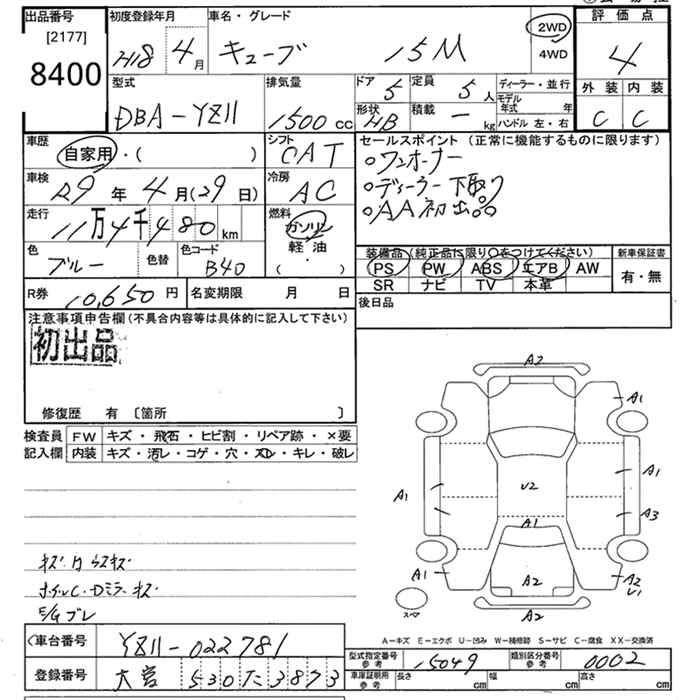 出品番号 初度登録年月 車名・グレード 評価点
[2177] 2WD
8400 H18 4月 キューブ 15M 4WD 4
型式 排気量 ドア 5 定員 5人 ディーラー・並行 外装 内装
モデル年式 年
DBA-YZ11 1500cc 形状 HB 積載 - kg ハンドル 左・右 C C
車歴 シフト セールスポイント (正常に機能するものに限ります)
自家用・( ) CAT ○ワンオーナー
車検 冷房 ○ディーラー下取り
29年4月(29日) AC ○AA初出品
走行 燃料
11万4千480km ガソリン
色 色替 色コード 軽油 装備品(純正品に限り○をつけてください) 新車保証書
ブルー B40 ( ・ ) PS PW ABS エアB AW 有・無
SR ナビ TV 本革
R券 10,650円 名変期限 月 日 後日品
注意事項申告欄(不具合内容等は具体的に記入して下さい)
初出品
修復歴 有 〔箇所 〕
検査員 FW キズ・飛石・ヒビ割・リペア跡・×要
記入欄 内装 キズ・汚レ・コゲ・穴・スレ・キレ・破レ
A2
A1
A1
A1 U2 A3
A1
A1 A2 A2
U1
スペア
A2
キズ
ホイルC・Dミラーキズ
E/Gブレ
A-キズ E-エクボ U-凹み W-補修跡 S-サビ C-腐食 XX-交換済
車台番号 YZ11-022781
型式指定番号 参考 15049 類別区分番号 参考 0002
登録番号 大宮 530 た 3873
車庫証明用 参考 長さ cm 幅 cm 高さ cm